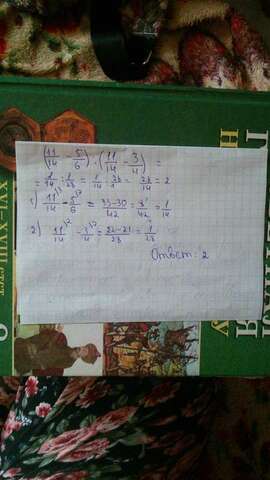 (11/14 - 5/6) : (11/14 - 3/4) =
= 1/14 : 1/28 = 1/14 · 28/1 = 28/14 = 2
1) 11/14 - 5/6 = 33-30/42 = 3/42 = 1/14
2) 11/14 - 3/4 = 22-21/28 = 1/28
Ответ: 2
XVI-XVIII